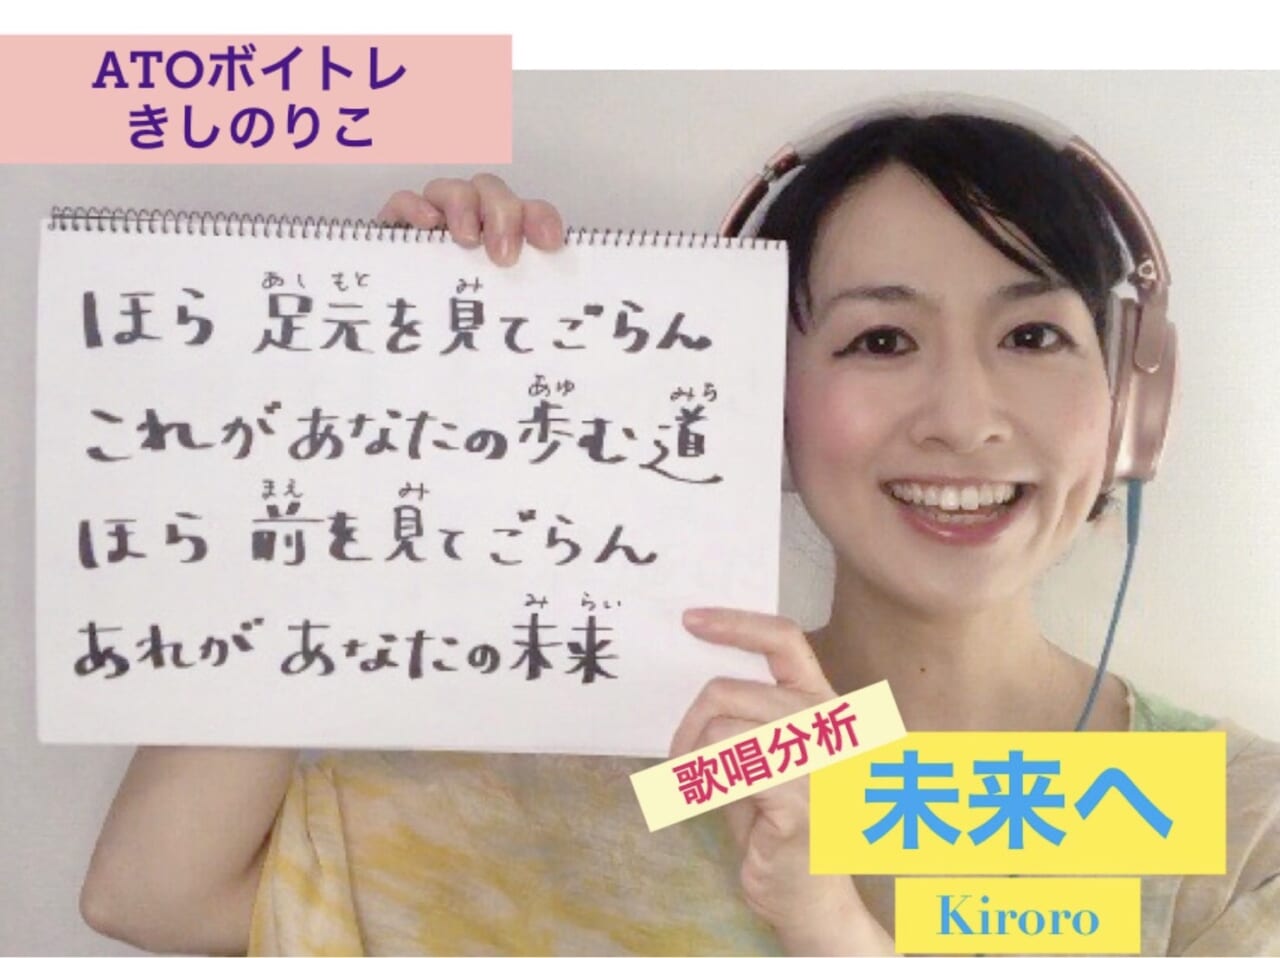 ATOボイトレ
きしのりこ
あし もと み
ほら 足元を見てごらん
あゆ みち
これがあなたの歩む道
まえ み
ほら 前を見てごらん
み らい
あれがあなたの未来
歌唱分析
未来へ
Kiroro